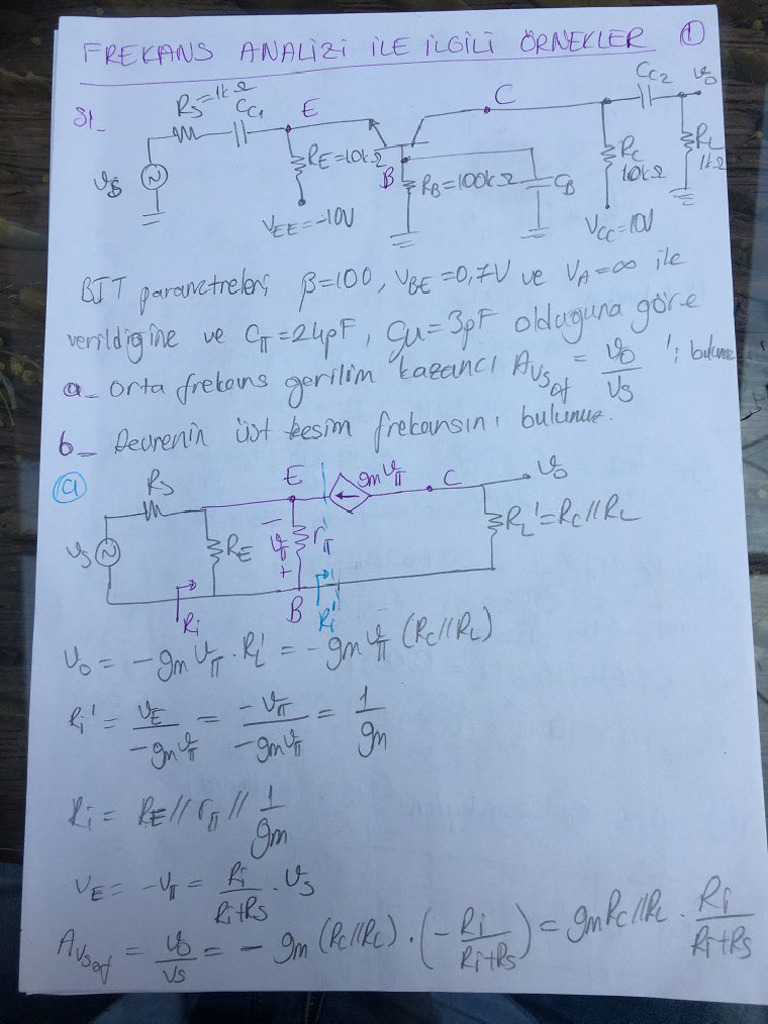 FREKANS ANALİZİ İLE İLGİLİ ÖRNEKLER 1
S1_
RS=1kΩ CC1 E C CC2 vo
RE=10kΩ B RB=100kΩ CB RC 10kΩ RL 1kΩ
vs
VEE=-10V VCC=10V
BJT parametreleri β=100, VBE=0,7V ve VA=∞ ile
verildiğine ve Cπ=24pF, Cμ=3pF olduğuna göre
a_ Orta frekans gerilim kazancı AVSof = vo/vs 'i bulunuz
b_ Devrenin üst kesim frekansını bulunuz.
a
RS E gmvπ C vo
vs RE - vπ + rπ RL'=RC//RL
Ri B Ri'
vo = -gmvπ.RL' = -gmvπ (RC//RL)
Ri' = vE/-gmvπ = -vπ/-gmvπ = 1/gm
Ri = RE//rπ//1/gm
vE = -vπ = Ri/Ri+RS . vs
AVSof = vo/vs = -gm (RC//RL).(-Ri/Ri+RS) = gmRC//RL . Ri/Ri+RS